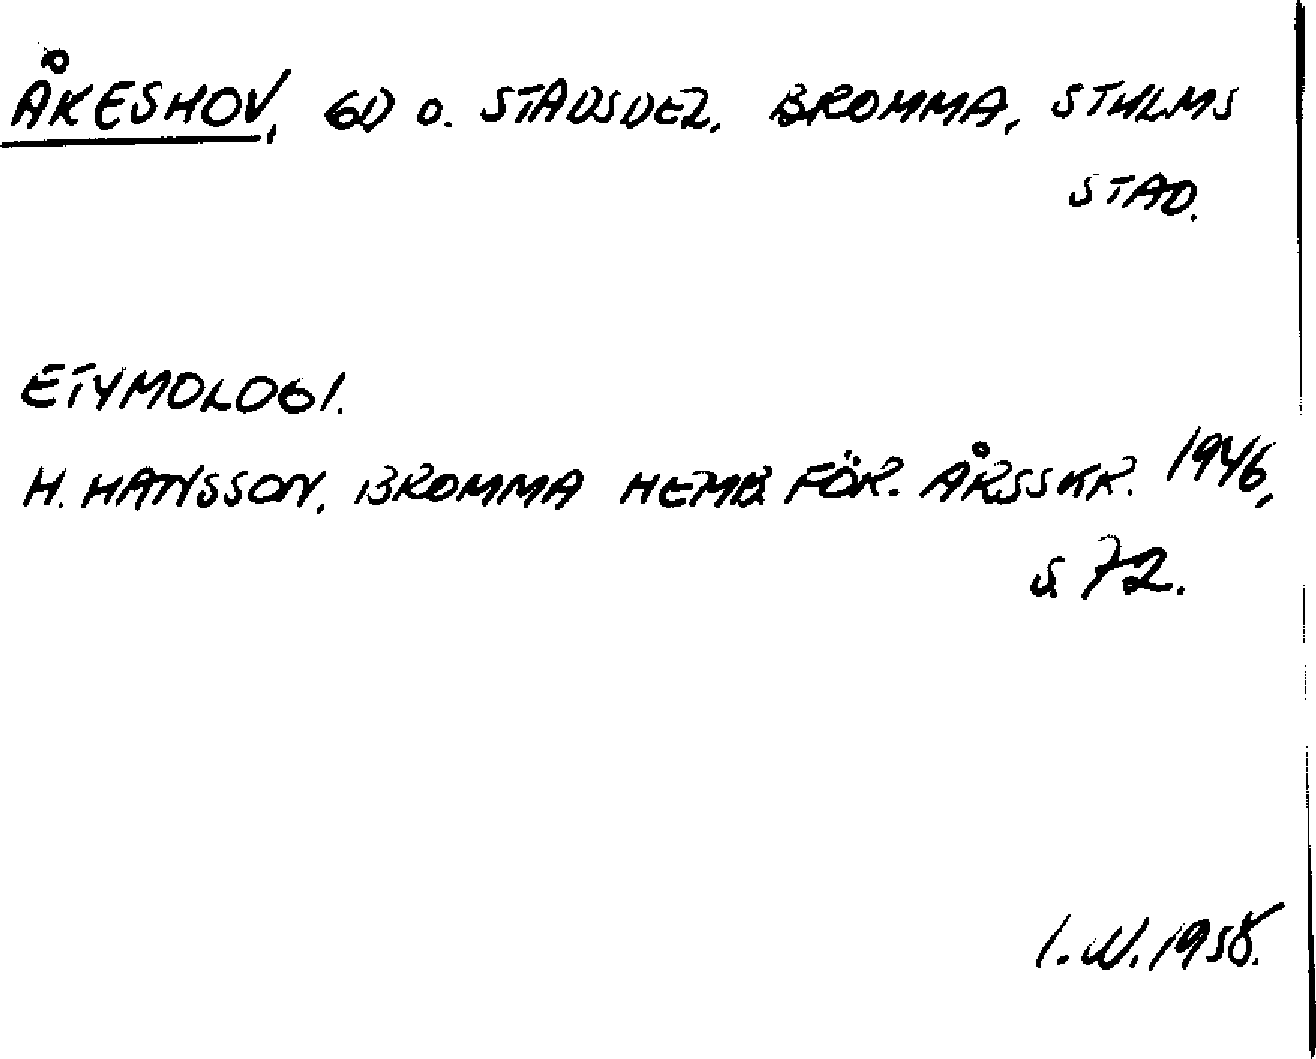 ÅKESHOV, GD O. STADSDEL, BROMMA, STHLMS
STAD.
ETYMOLOGI.
H. HANSSON, BROMMA HEMB FÖR. ÅRSSKR. 1946,
S. 72.
I. N. 1958.